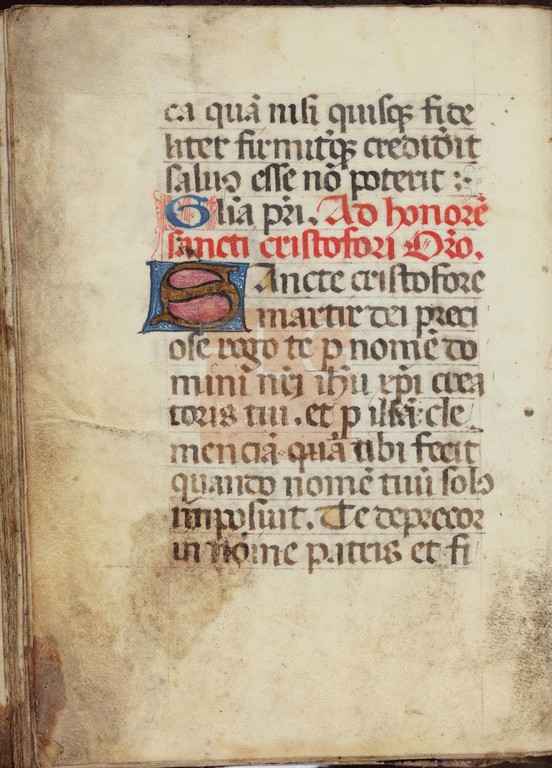 ca quā nisi quisq̄ fide
liter firmit̄q̄ crediđit
saluꝰ esse nō poterit :~
Gl̄ia pr̄i. Ad honorē
sancti cristofori Or̄o.
SAncte cristofore
martir dei preci
ose rogo te p̱ nomē do
mini nr̄i ihū xp̄i crea
toris tui. et p̱ illā cle
menciā quā tibi fecit
quando nomē tuū solꝰ
imposuit. Te deprecor
in nōine patris et fi